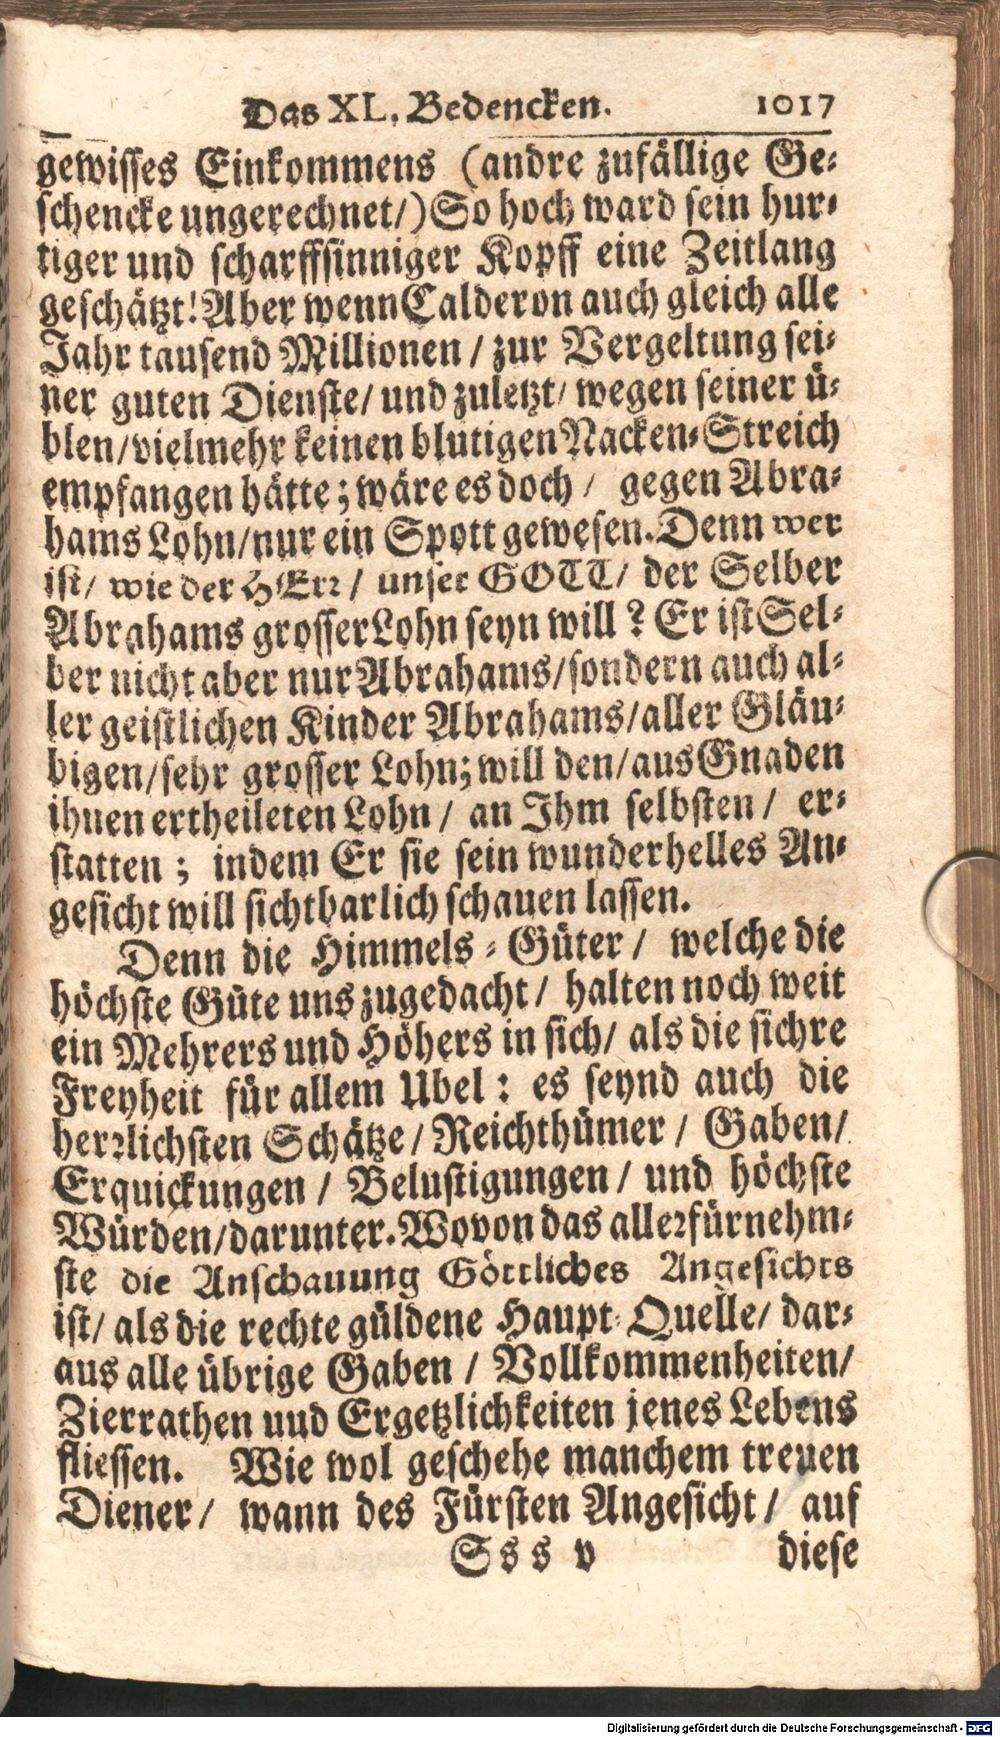 Das XL. Bedencken. 1017
gewisses Einkommens (andre zufällige Ge-
schencke ungerechnet/) So hoch ward sein hur-
tiger und scharffsinniger Kopff eine Zeitlang
geschätzt! Aber wenn Calderon auch gleich alle
Jahr tausend Millionen / zur Vergeltung sei-
ner guten Dienste/ und zuletzt/ wegen seiner ü-
blen/ vielmehr keinen blutigen Nacken-Streich
empfangen hätte; wäre es doch / gegen Abra-
hams Lohn/ nur ein Spott gewesen. Denn wer
ist/ wie der HErr / unser GOTT/ der Selber
Abrahams grosser Lohn seyn will? Er ist Sel-
ber nicht aber nur Abrahams/ sondern auch al-
ler geistlichen Kinder Abrahams/ aller Gläu-
bigen/ sehr grosser Lohn; will den/ aus Gnaden
ihnen ertheileten Lohn / an Ihm selbsten / er-
statten; indem Er sie sein wunderhelles An-
gesicht will sichtbarlich schauen lassen.
Denn die Himmels-Güter / welche die
höchste Güte uns zugedacht / halten noch weit
ein Mehrers und Höhers in sich/ als die sichre
Freyheit für allem Ubel: es seynd auch die
herrlichsten Schätze / Reichthümer / Gaben/
Erquickungen / Belustigungen / und höchste
Würden/ darunter. Wovon das allerfürnehm-
ste die Anschauung Göttliches Angesichts
ist/ als die rechte güldene Haupt-Quelle/ dar-
aus alle übrige Gaben / Vollkommenheiten/
Zierrathen uud Ergetzlichkeiten jenes Lebens
fliessen. Wie wol geschehe manchem treuen
Diener / wann des Fürsten Angesicht / auf
Sss v diese
Digitalisierung gefördert durch die Deutsche Forschungsgemeinschaft - DFG